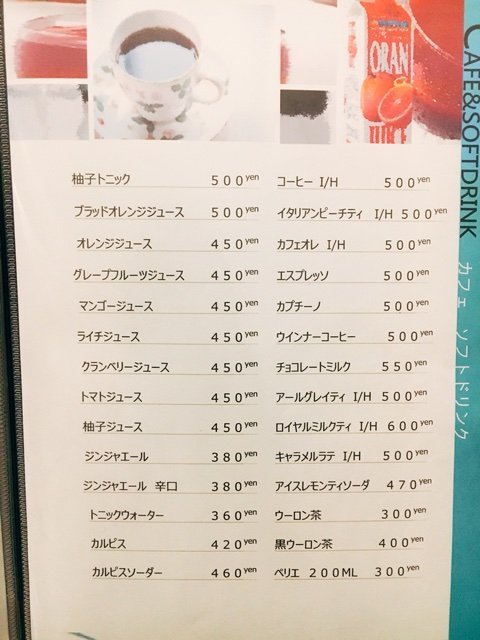 ORAN
JUICE
CAFE&SOFTDRINK カフェ ソフトドリンク
柚子トニック 500yen
ブラッドオレンジジュース 500yen
オレンジジュース 450yen
グレープフルーツジュース 450yen
マンゴージュース 450yen
ライチジュース 450yen
クランベリージュース 450yen
トマトジュース 450yen
柚子ジュース 450yen
ジンジャエール 380yen
ジンジャエール 辛口 380yen
トニックウォーター 360yen
カルピス 420yen
カルピスソーダー 460yen
コーヒー I/H 500yen
イタリアンピーチティ I/H 500yen
カフェオレ I/H 500yen
エスプレッソ 500yen
カプチーノ 500yen
ウインナーコーヒー 500yen
チョコレートミルク 550yen
アールグレイティ I/H 500yen
ロイヤルミルクティ I/H 600yen
キャラメルラテ I/H 500yen
アイスレモンティソーダ 470yen
ウーロン茶 300yen
黒ウーロン茶 400yen
ペリエ 200ML 300yen